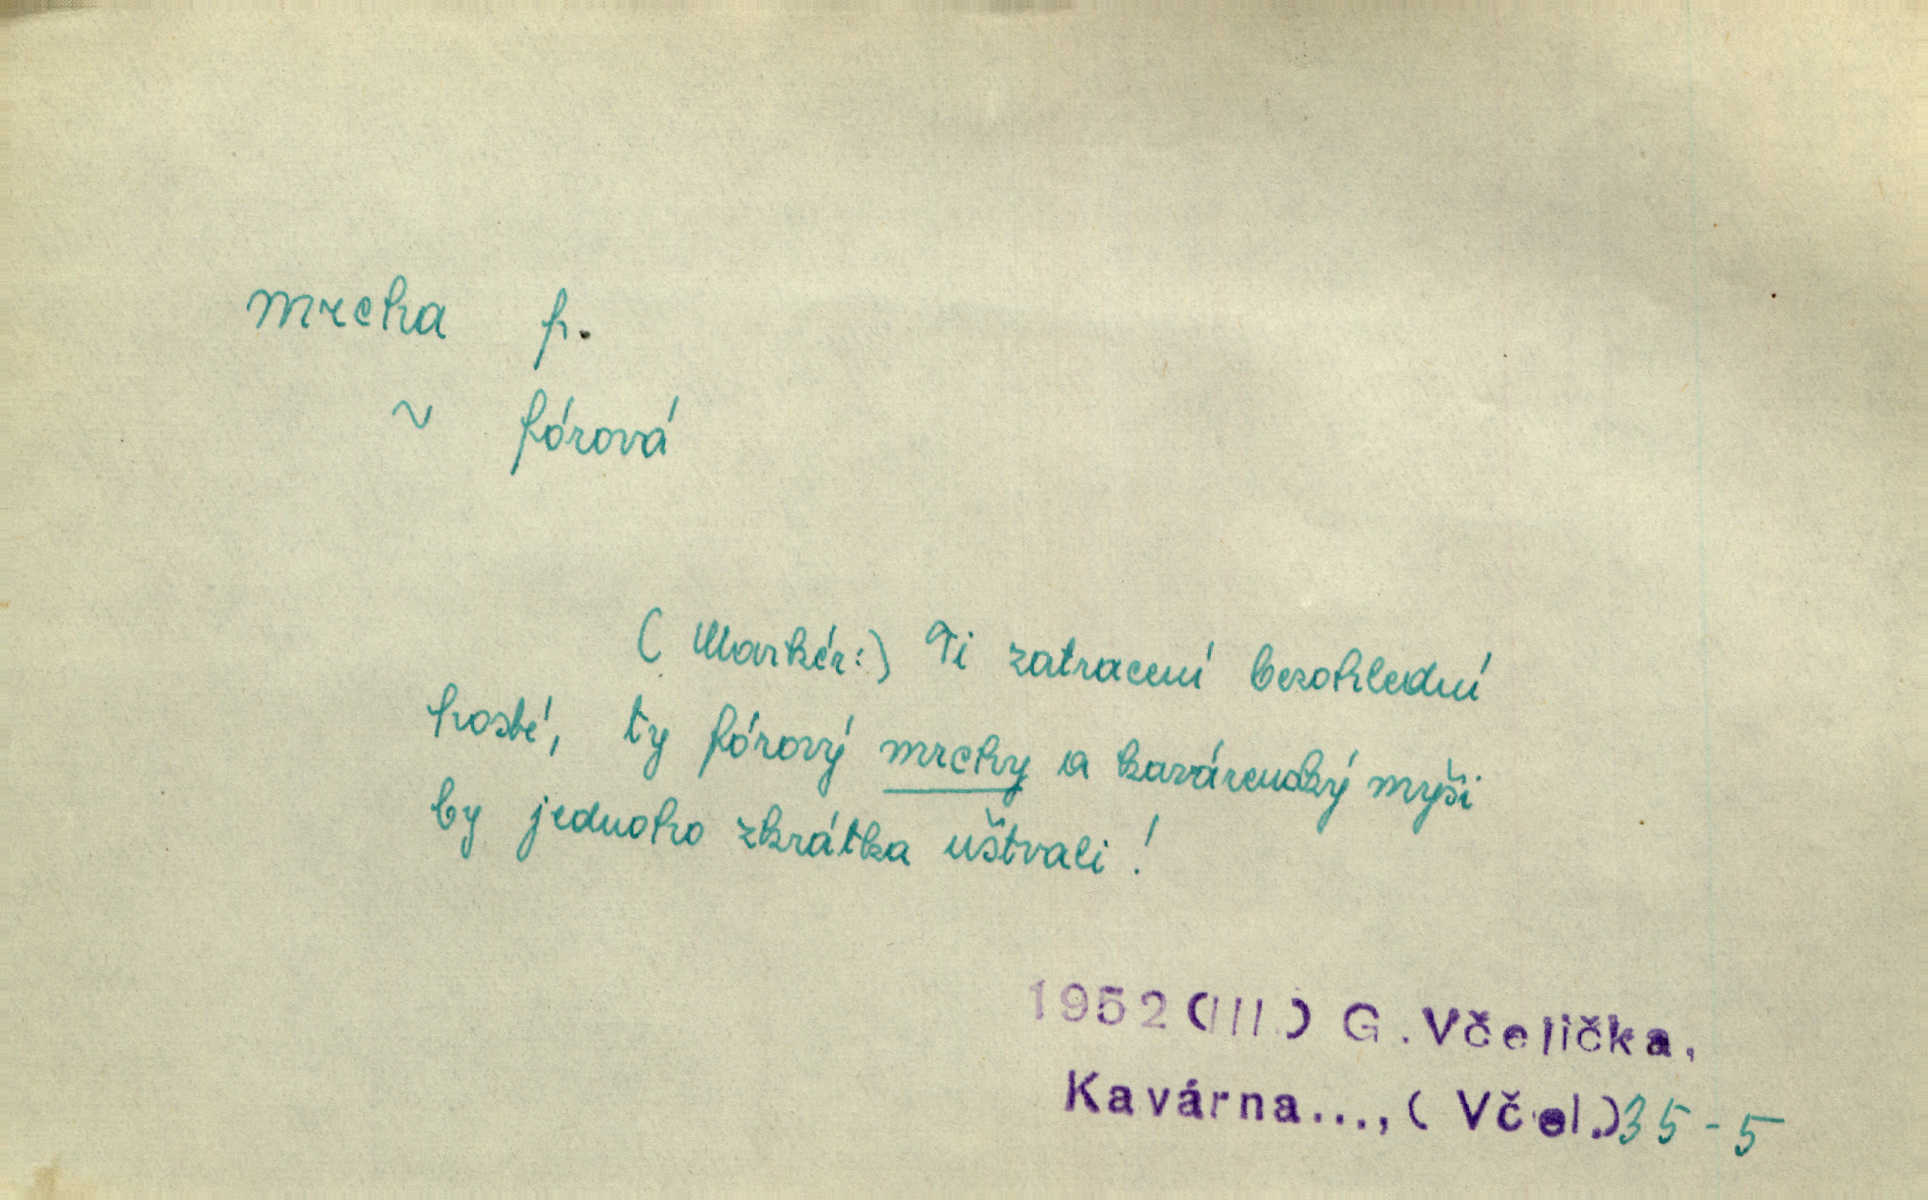 mrcha f.
~ fórová
( Markér:) Ti zatracení bezohlední
hosté, ty fórový mrchy a kavárenský myši
by jednoho zkrátka uštvali !
1952 (III.) G. Včelička,
Kavárna..., ( Včel.) 35 - 5